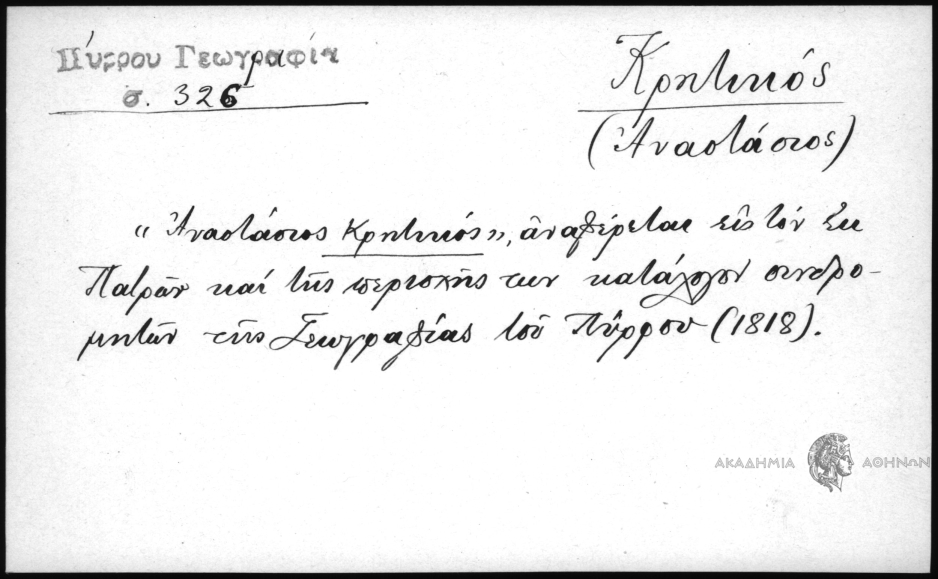 Πύρρου Γεωγραφία
σ. 326
Κρητικός
(Ἀναστάσιος)
«Ἀναστάσιος Κρητικός», ἀναφέρεται εἰς τόν ἐκ
Πατρῶν καί τῆς περιοχῆς των κατάλογον συνδρο-
μητῶν τῆς Γεωγραφίας τοῦ Πύρρου (1818).
ΑΚΑΔΗΜΙΑ ΑΘΗΝΩΝ